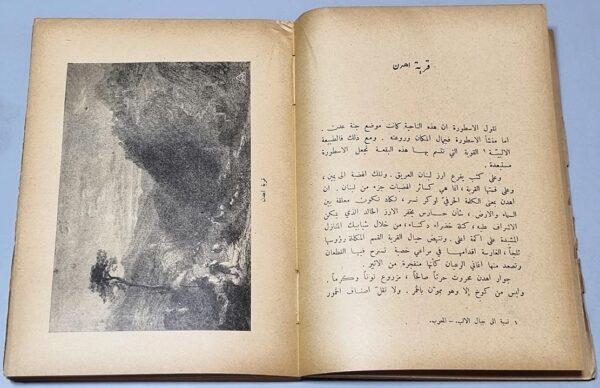 قرية اهدن
تقول الاسطورة ان هذه الناحية كانت موضع جنة عدن .
اما منشأ الاسطورة فجمال المكان وروعته . ومع ذلك فالطبيعة
الالبية ١ القوية التي تتسم بها هذه البلعة تجعل الاسطورة
مستبعدة .
وعلى كثب يفرع ارز لبنان العريق . وتلك الهضبة الى يمين ،
وعلى قمتها القرية ، انما هي كسائر الهضبات جزء من لبنان . ان
اهدن بمعنى الكلمة الحرفي لوكر نسر ، تكاد تكون معلقة بين
السماء والارض ، شأن حارس يخفر الارز الخالد الذي يمكن
الاشراف عليه ، كتلة خضراء دكناء ، من خلال شبابيك المنازل
المشيدة على اكمة اعلى . وتنهض جبال القرية القمم المكللة رؤوسها
ثلجاً ، الغارسة اقدامها في مراعي خصبة تسرح فيها القطعان
وتصعد منها اغاني الرعيان كأنها منفجرة من الاثير
جوار اهدن محروث حرثاً صالحاً ، مزروع توتاً وكرماً .
وليس من كوخ إلا وهو مموّن بالخمر . ولا تقلّ اصناف الخمور
١ نسبة الى جبال الالب . – المعرب .
قرية اهدن